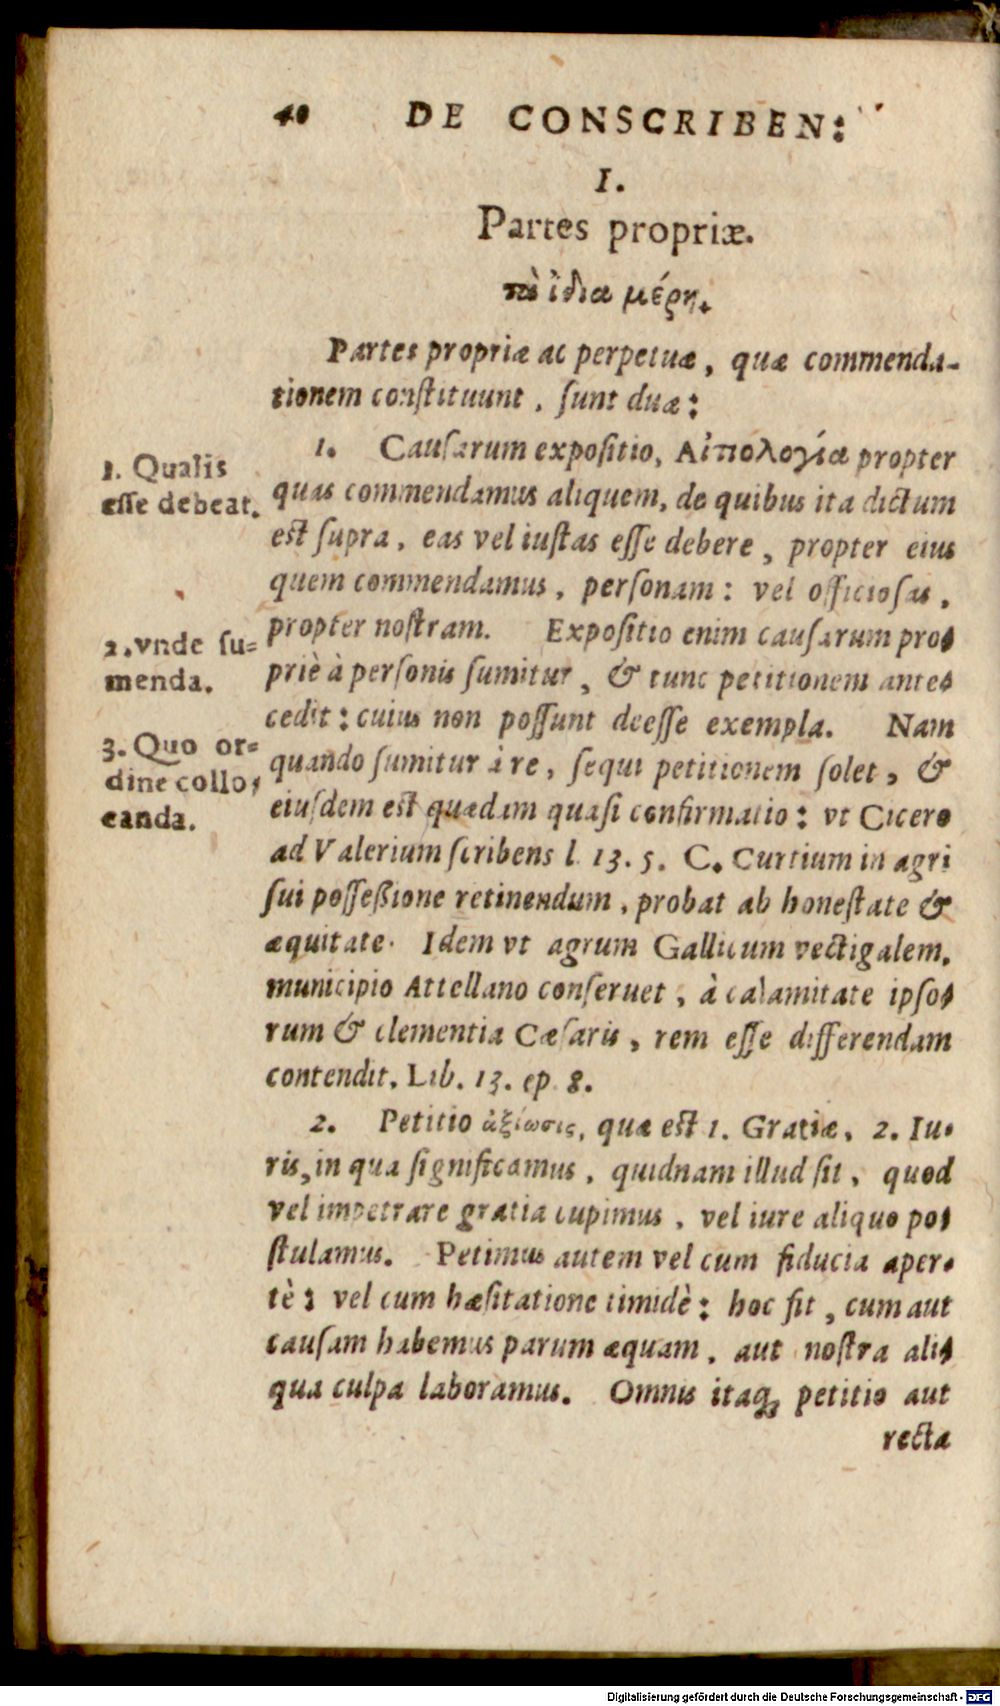 40 DE CONSCRIBEN:
I.
Partes propriæ.
τὰ ἴδια μέρη.
Partes propriæ ac perpetuæ, quæ commenda-
tionem constituunt, sunt duæ:
1. Causarum expositio, Αἰτιολογία propter
quas commendamus aliquem, de quibus ita dictum
est supra, eas vel iustas esse debere, propter eius
quem commendamus, personam: vel officiosas,
propter nostram. Expositio enim causarum pro-
priè à personis sumitur, & tunc petitionem ante-
cedit: cuius non possunt deesse exempla. Nam
quando sumitur à re, sequi petitionem solet, &
eiusdem est quædam quasi confirmatio: vt Cicero
ad Valerium scribens l. 13. 5. C. Curtium in agri
sui possessione retinendum, probat ab honestate &
æquitate. Idem vt agrum Gallicum vectigalem,
municipio Attellano conseruet, à calamitate ipso-
rum & clementia Cæsaris, rem esse differendam
contendit. Lib. 13. ep 8.
2. Petitio ἀξίωσις, quæ est 1. Gratiæ, 2. Iu-
ris, in qua significamus, quidnam illud sit, quod
vel impetrare gratia cupimus, vel iure aliquo po-
stulamus. Petimus autem vel cum fiducia aper-
tè: vel cum hæsitatione timidè: hoc fit, cum aut
causam habemus parum æquam, aut nostra ali-
qua culpa laboramus. Omnis itaq; petitio aut
recta
1. Qualis
esse debeat.
2. vnde su-
menda.
3. Quo or-
dine collo-
canda.
Digitalisierung gefördert durch die Deutsche Forschungsgemeinschaft - DFG